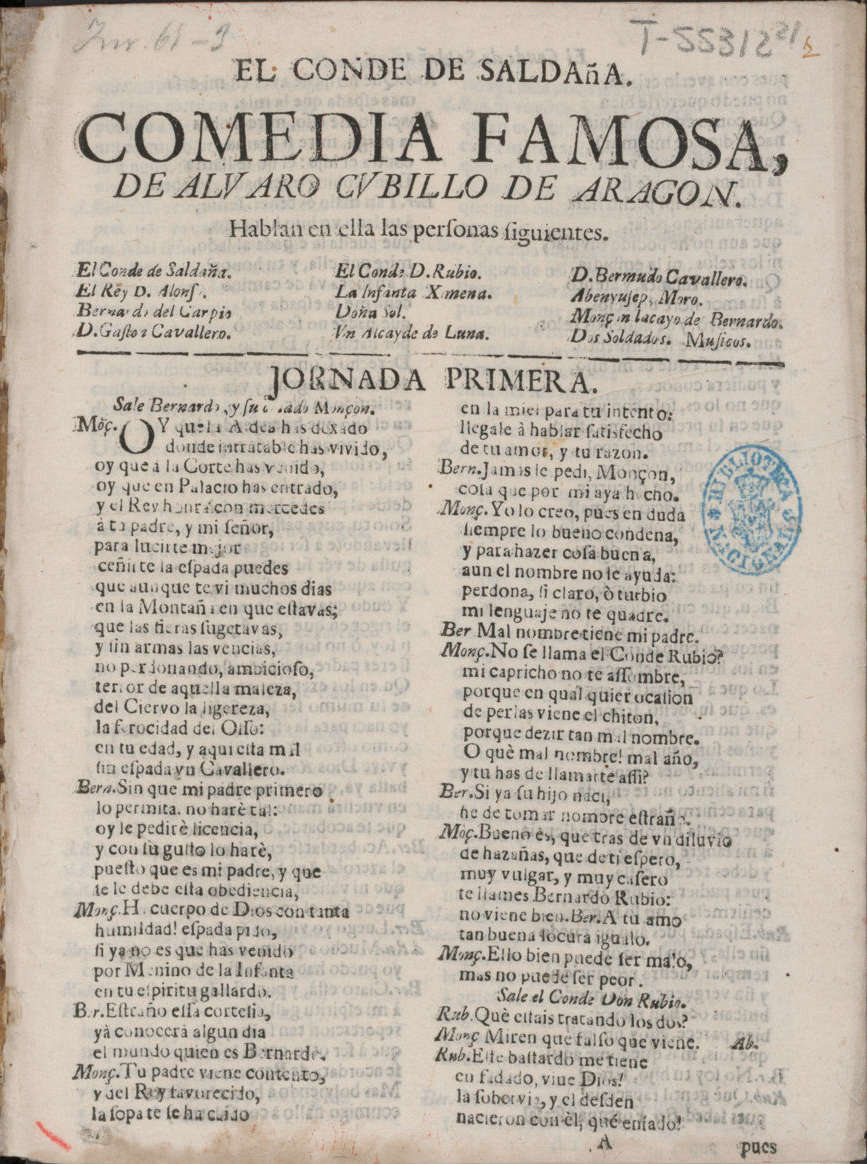 Inv. 61-9
T-55312 21
2
EL CONDE DE SALDAñA.
COMEDIA FAMOSA,
DE ALVARO CVBILLO DE ARAGON.
Hablan en ella las perſonas ſiguientes.
El Conde de Saldaña.
El Rey D. Alonſ.
Bernardo del Carpio
D. Gaſton Cavallero.
El Conde D. Rubio.
La Infanta Ximena.
Doña Sol.
Vn Alcayde de Luna.
D. Bermudo Cavallero.
Abenyuſeph, Moro.
Monçon lacayo de Bernardo.
Dos Soldados. Muſicos.
JORNADA PRIMERA.
Sale Bernardo, y ſu criado Monçon.
Mõç. OY que la Aldea has dexado
donde intratable has vivido,
oy que à la Corte has venido,
oy que en Palacio has entrado,
y el Rey honra con mercedes
à tu padre, y mi ſeñor,
para lucirte mejor
ceñirte la eſpada puedes
que aunque te vi muchos dias
en la Montaña en que eſtavas;
que las fieras ſugetavas,
y ſin armas las vencias,
no perdonando, ambicioſo,
terror de aquella maleza,
del Ciervo la ligereza,
la ferocidad del Oſſo:
en tu edad, y aqui eſta mal
ſin eſpada vn Cavallero.
Bern. Sin que mi padre primero
lo permita, no harè tal:
oy le pedirè licencia,
y con ſu guſto lo harè,
pueſto que es mi padre, y que
ſe le debe eſta obediencia,
Monç. Ha cuerpo de Dios con tanta
humildad! eſpada pido,
ſi ya no es que has venido
por Menino de la Infanta
en tu eſpiritu gallardo.
Ber. Eſtraño eſſa corteſia,
yà conocerà algun dia
el mundo quien es Bernardo.
Monç. Tu padre viene contento,
y del Rey favorecido,
la ſopa te ſe ha caido
en la miel para tu intento:
llegale à hablar ſatisfecho
de tu amor, y tu razon.
Bern. Jamas le pedi, Monçon,
coſa que por mi aya hecho.
Monç. Yo lo creo, pues en duda
ſiempre lo bueno condena,
y para hazer coſa buena,
aun el nombre no le ayuda:
perdona, ſi claro, ò turbio
mi lenguaje no te quadre.
Ber Mal nombre tiene mi padre.
Monç. No ſe llama el Conde Rubio?
mi capricho no te aſſombre,
porque en qualquier ocaſion
de perlas viene el chiton,
porque dezir tan mal nombre.
O què mal nombre! mal año,
y tu has de llamarte aſſi?
Ber. Si ya ſu hijo naci,
he de tomar nombre eſtraño.
Mõç. Bueno es, que tras de vn diluvio
de hazañas, que de ti eſpero,
muy vulgar, y muy caſero
te llames Bernardo Rubio:
no viene bien. Ber. A tu amo
tan buena locura igualo.
Monç. Ello bien puede ſer malo,
mas no puede ſer peor.
Sale el Conde Don Rubio.
Rub. Què eſtais tratando los dos?
Monç Miren que falſo que viene. Ap.
Rub. Eſte baſtardo me tiene
enfadado, vive Dios!
la ſobervia, y el deſden
nacieron con èl, què enfado!
A
pues
BIBLIOTECA NACIONAL